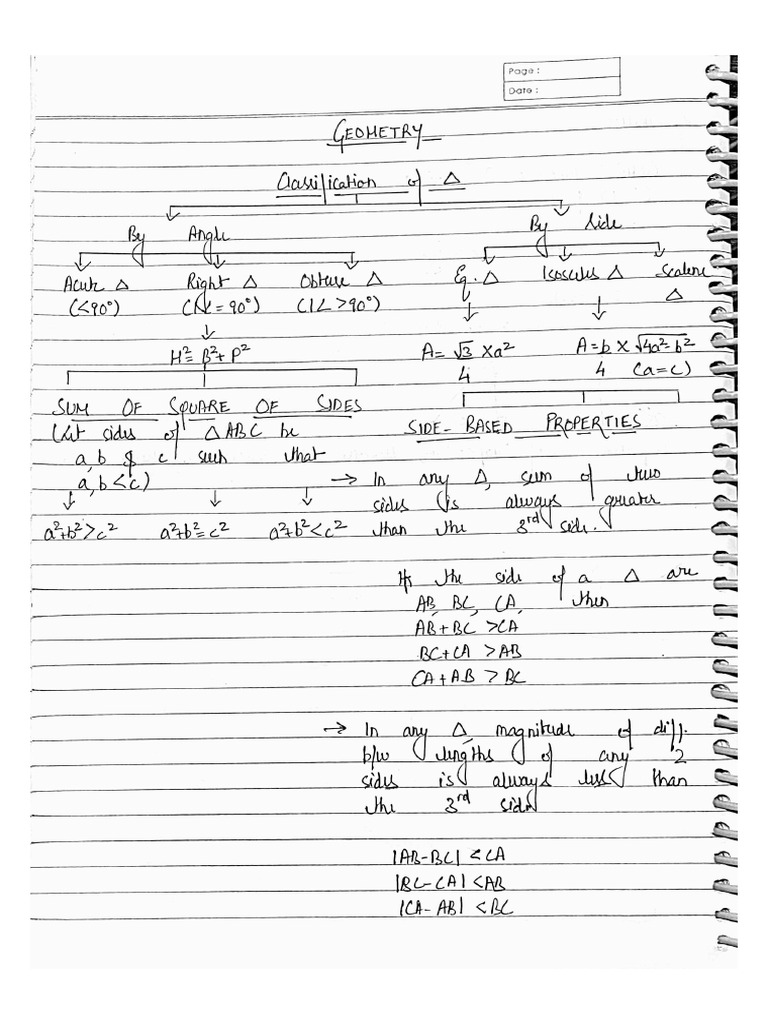 Page :
Date :
GEOMETRY
Classification of Δ
By Angle
By Side
Acute Δ Right Δ Obtuse Δ
Eq. Δ Isosceles Δ Scalene Δ
(<90°) (1∠=90°) (1∠>90°)
H²=B²+P²
A=√3/4 Xa²
A=b/4 X √4a²-b²
(a=c)
SUM OF SQUARE OF SIDES
(Let sides of ΔABC be
a, b & c such that
a, b<c)
a²+b²>c² a²+b²=c² a²+b²<c²
SIDE-BASED PROPERTIES
→ In any Δ, sum of two
sides is always greater
than the 3rd side.
If the side of a Δ are
AB, BC, CA, then
AB+BC >CA
BC+CA >AB
CA+AB > BC
→ In any Δ, magnitude of diff.
b/w lengths of any 2
sides is always less than
the 3rd side
|AB-BC| <CA
|BC-CA| <AB
|CA-AB| <BC